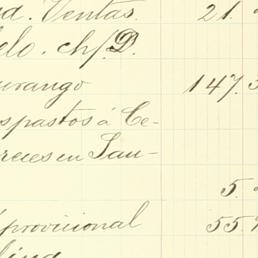 d. Ventas. 21.
elo. ch/. D.
urango 147.3
spastos á Ce-
reces en Sau-
5.
provicional 55.